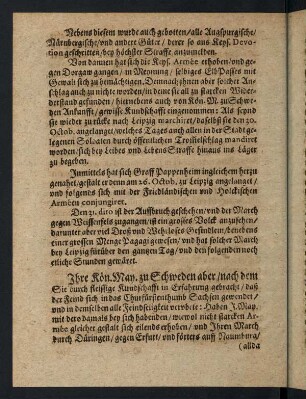 Nebens diesem wurde auch gebotten/alle Augspurgische/
Nürnbergische/und andere Güter/ derer so aus Keys. Devo-
tion geschritten/bey höchster Straffe anzumelden.
Von dannen hat sich die Keys. Armée erhoben/und ge-
gen Dorgaw gangen/in Meynung/selbiges Elb Passes mit
Gewalt sich zu bemächtigen. Demnach ihnen aber solcher An-
schlag auch zu nichts worden/in deme sie all zu starcken Wider-
derstand gefunden/hiernebens auch von Kön. M. zu Schwe-
den Ankunfft/gewisse Kundschafft eingenommen: Als seynd
sie wider zu rücke nach Leipzig marchiret/daselbst sie den 20.
Octob. angelanget/welches Tages auch allen in der Stadt ge-
legenen Soldaten durch öffentlichen Trom̃elschlag mandiret
worden/sich bey Leibes und Lebens Straffe hinaus ins Läger
zu begeben.
Inmittels hat sich Graff Poppenheim ingleichem herzu
gemachet/gestalt er denn am 26. Octob. zu Leipzig angelanget/
und folgents sich mit der Friedländischen und Holckischen
Armeen conjungiret.
Den 21. diro ist der Auffbruch geschehen/und der March
gegen Weissenfels zugangen/ist ein grosses Volck anzusehen/
darunter aber viel Droß und Wehrloses Gesündlein/benebens
einer grossen Menge Pagagi gewesen/und hat solcher March
bey Leipzig fürüber den gantzen Tag/und den folgenden noch
etliche Stunden gewäret.
Ihre Kön. May. zu Schweden aber/nach dem
Sie durch fleissige Kundschafft in Erfahrung gebracht/daß
der Feind sich in das Churfürstenthumb Sachsen gewendet/
und in demselben alle Feindseligkeit verübete: Haben J. May.
mit dero damals bey sich habenden/wiewol nicht starcken Ar-
mée gleicher gestalt sich eilends erhoben/und Ihren March
durch Düringen/gegen Erfurt/und förters auff Naumburg/
(allda